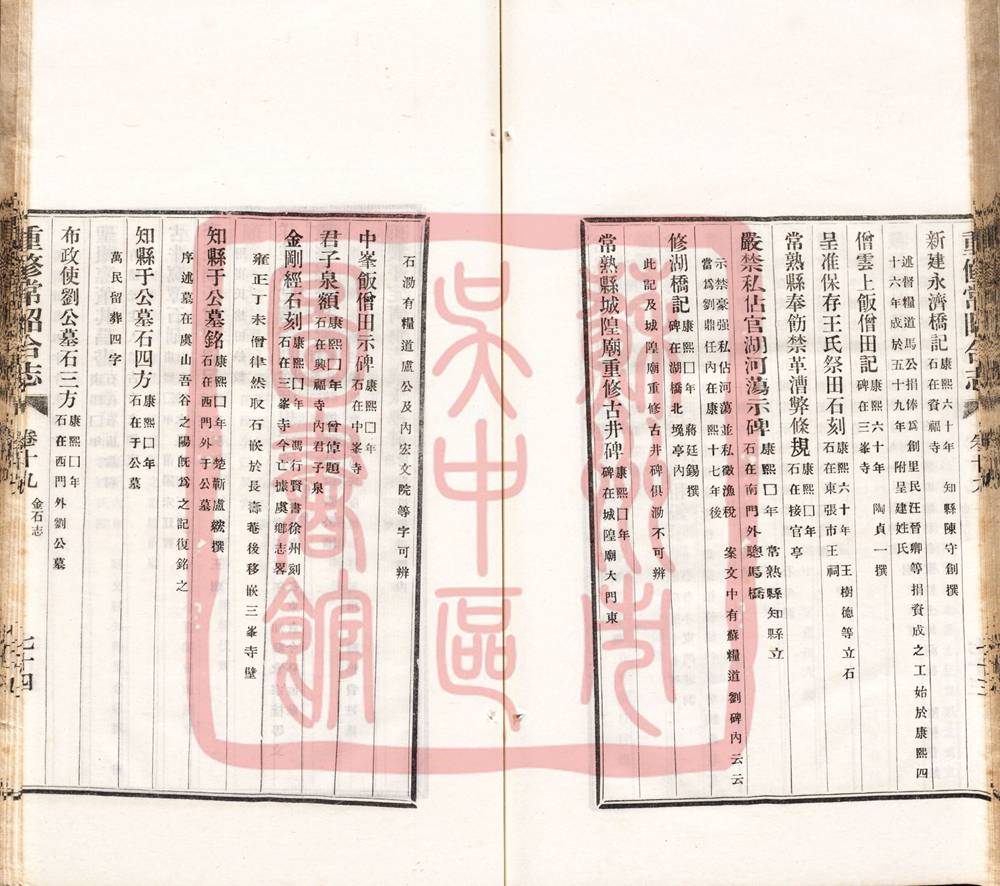 新建永濟橋記 康熙六十年 知縣陳守創撰
石在資福寺
述督糧道馬公捐俸爲創里民汪晉卿等捐資成之工始於康熙四
十六年成於五十九年 附呈建姓氏
僧雲上飯僧田記 康熙六十年 陶貞一撰
碑在三峯寺
呈准保存王氏祭田石刻 康熙六十年 王樹德等立石
石在東張市王祠
常熟縣奉飭禁革漕弊條規 康熙囗年
石在接官亭
嚴禁私佔官湖河蕩示碑 康熙囗年 常熟縣知縣立
石在南門外驄馬橋
示禁豪强私佔河蕩並私徵漁稅 案文中有蘇糧道劉碑內云云
當爲劉鼎任內在康熙十七年後
修湖橋記 康熙囗年 蔣廷錫撰
碑在湖橋北堍亭內
此記及城隍廟重修古井碑俱泐不可辨
常熟縣城隍廟重修古井碑 康熙囗年
碑在城隍廟大門東
石泐有糧道盧公及內宏文院等字可辨
中峯飯僧田示碑 康熙囗年
石在中峯寺
君子泉額 康熙囗年 曾倬題
石在興福寺內君子泉
金剛經石刻 康熙囗年 馮行賢書徐州刻
石在三峯寺今亡據虞鄉志畧
雍正丁未僧律然取石嵌於長壽菴後移嵌三峯寺壁
知縣于公墓銘 康熙囗年 楚蘄盧綋撰
石在西門外于公墓
序述墓在虞山吾谷之陽旣爲之記復銘之
知縣于公墓石四方 康熙囗年
石在于公墓
萬民留葬四字
布政使劉公墓石三方 康熙囗年
石在西門外劉公墓
重修常昭合志 卷十九 金石志 七十四
蘇州市
吳中區
圖書館